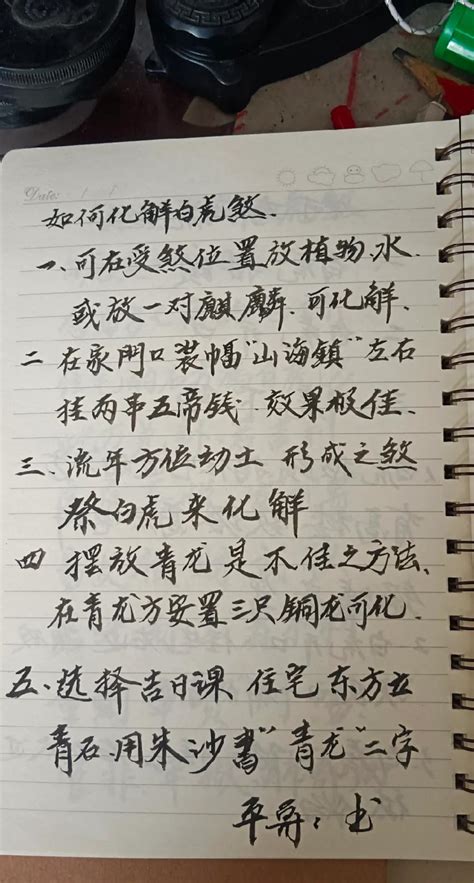 Date: / /
如何化解白虎煞.
一、可在受煞位置放植物、水.
或放一对麒麟.可化解、
二 在家門口装幅"山海鎮"左右
挂两串五帝钱.效果极佳、
三、流年方位动土 形成之煞
祭白虎来化解
四 摆放青龙是不佳之方法、
在青龙方安置三只铜龙可化.
五、选择吉日课 住宅东方立
青石.用朱沙書"青龙"二字
平 : 书